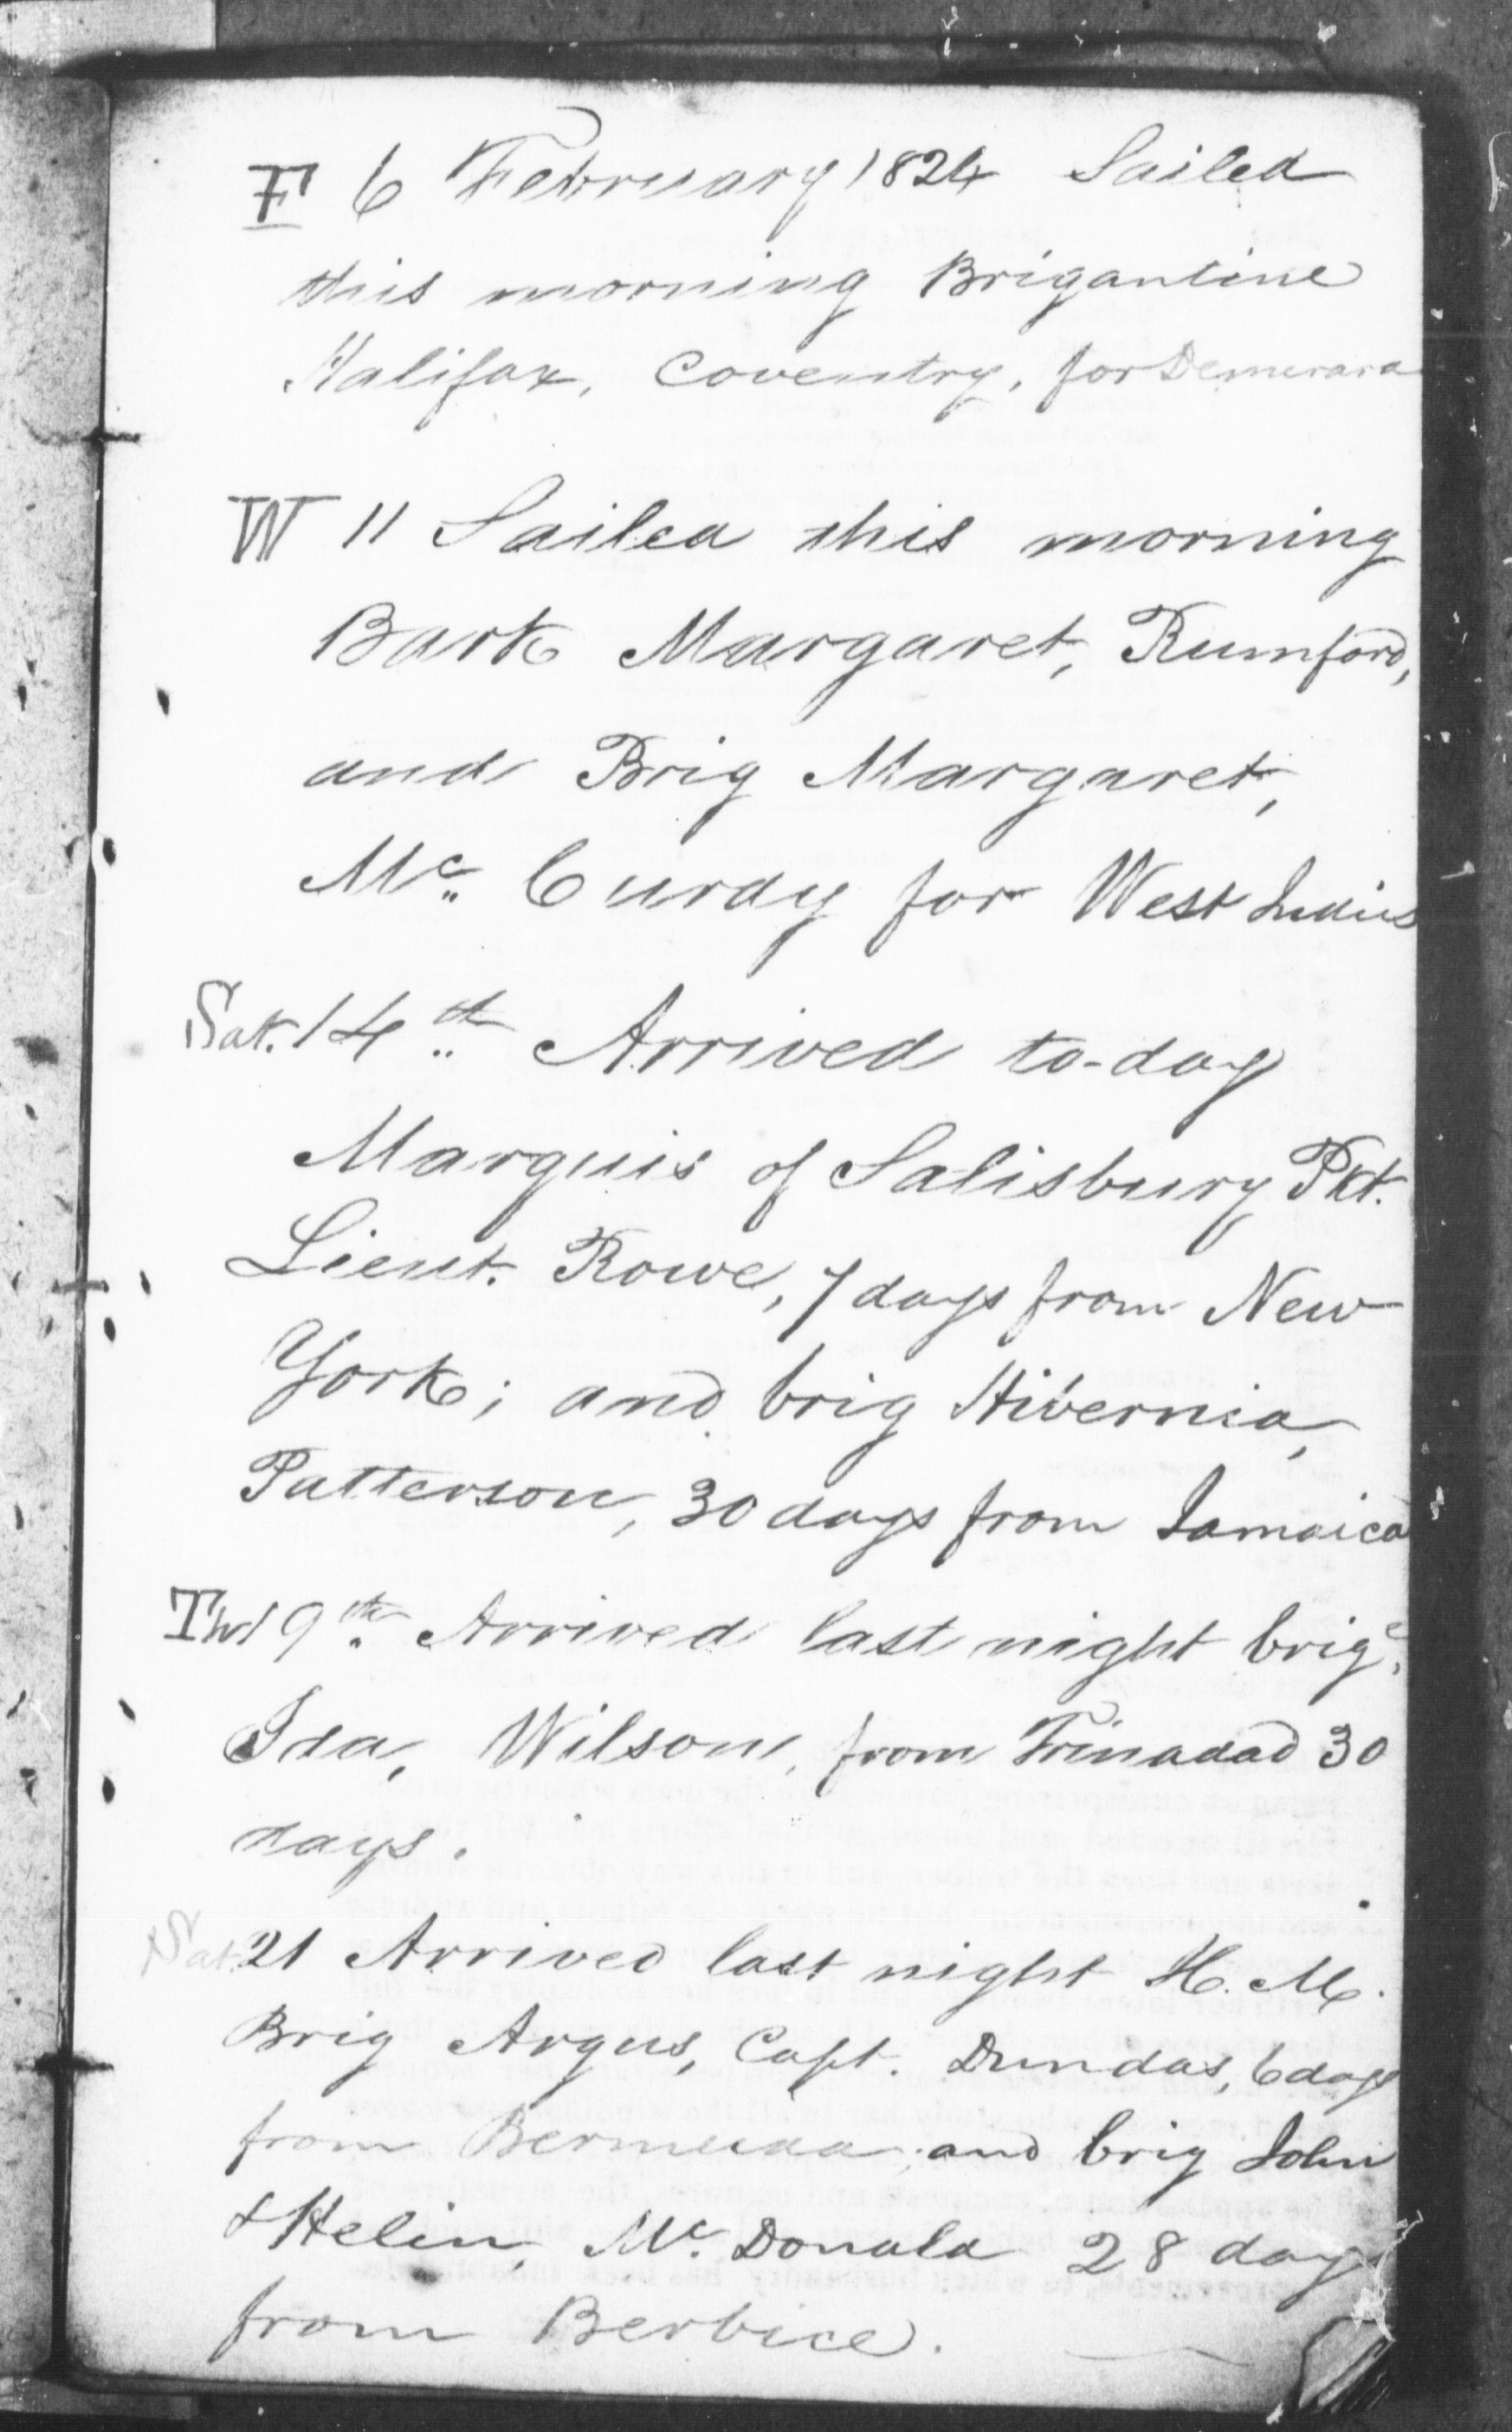 F 6 February 1824 Sailed
this morning Brigantine
Halifax, Coventry, for Demerara
W 11 Sailed this morning
Bark Margaret, Rumford,
and Brig Margaret,
Mc. Curdy for West Indies
Sat. 14th Arrived to-day
Marquis of Salisbury Pkt.
Lieut. Rowe, 7 days from New
York; and brig Hibernia,
Patterson, 30 days from Jamaica
Th 19th Arrived last night brige,
Ida, Wilson, from Trinadad 30
days.
Sat. 21 Arrived last night H. M.
Brig Argus, Capt. Dundas, 6 days
from Bermuda; and brig John
& Helin, Mc. Donald 28 days
from Berbice.